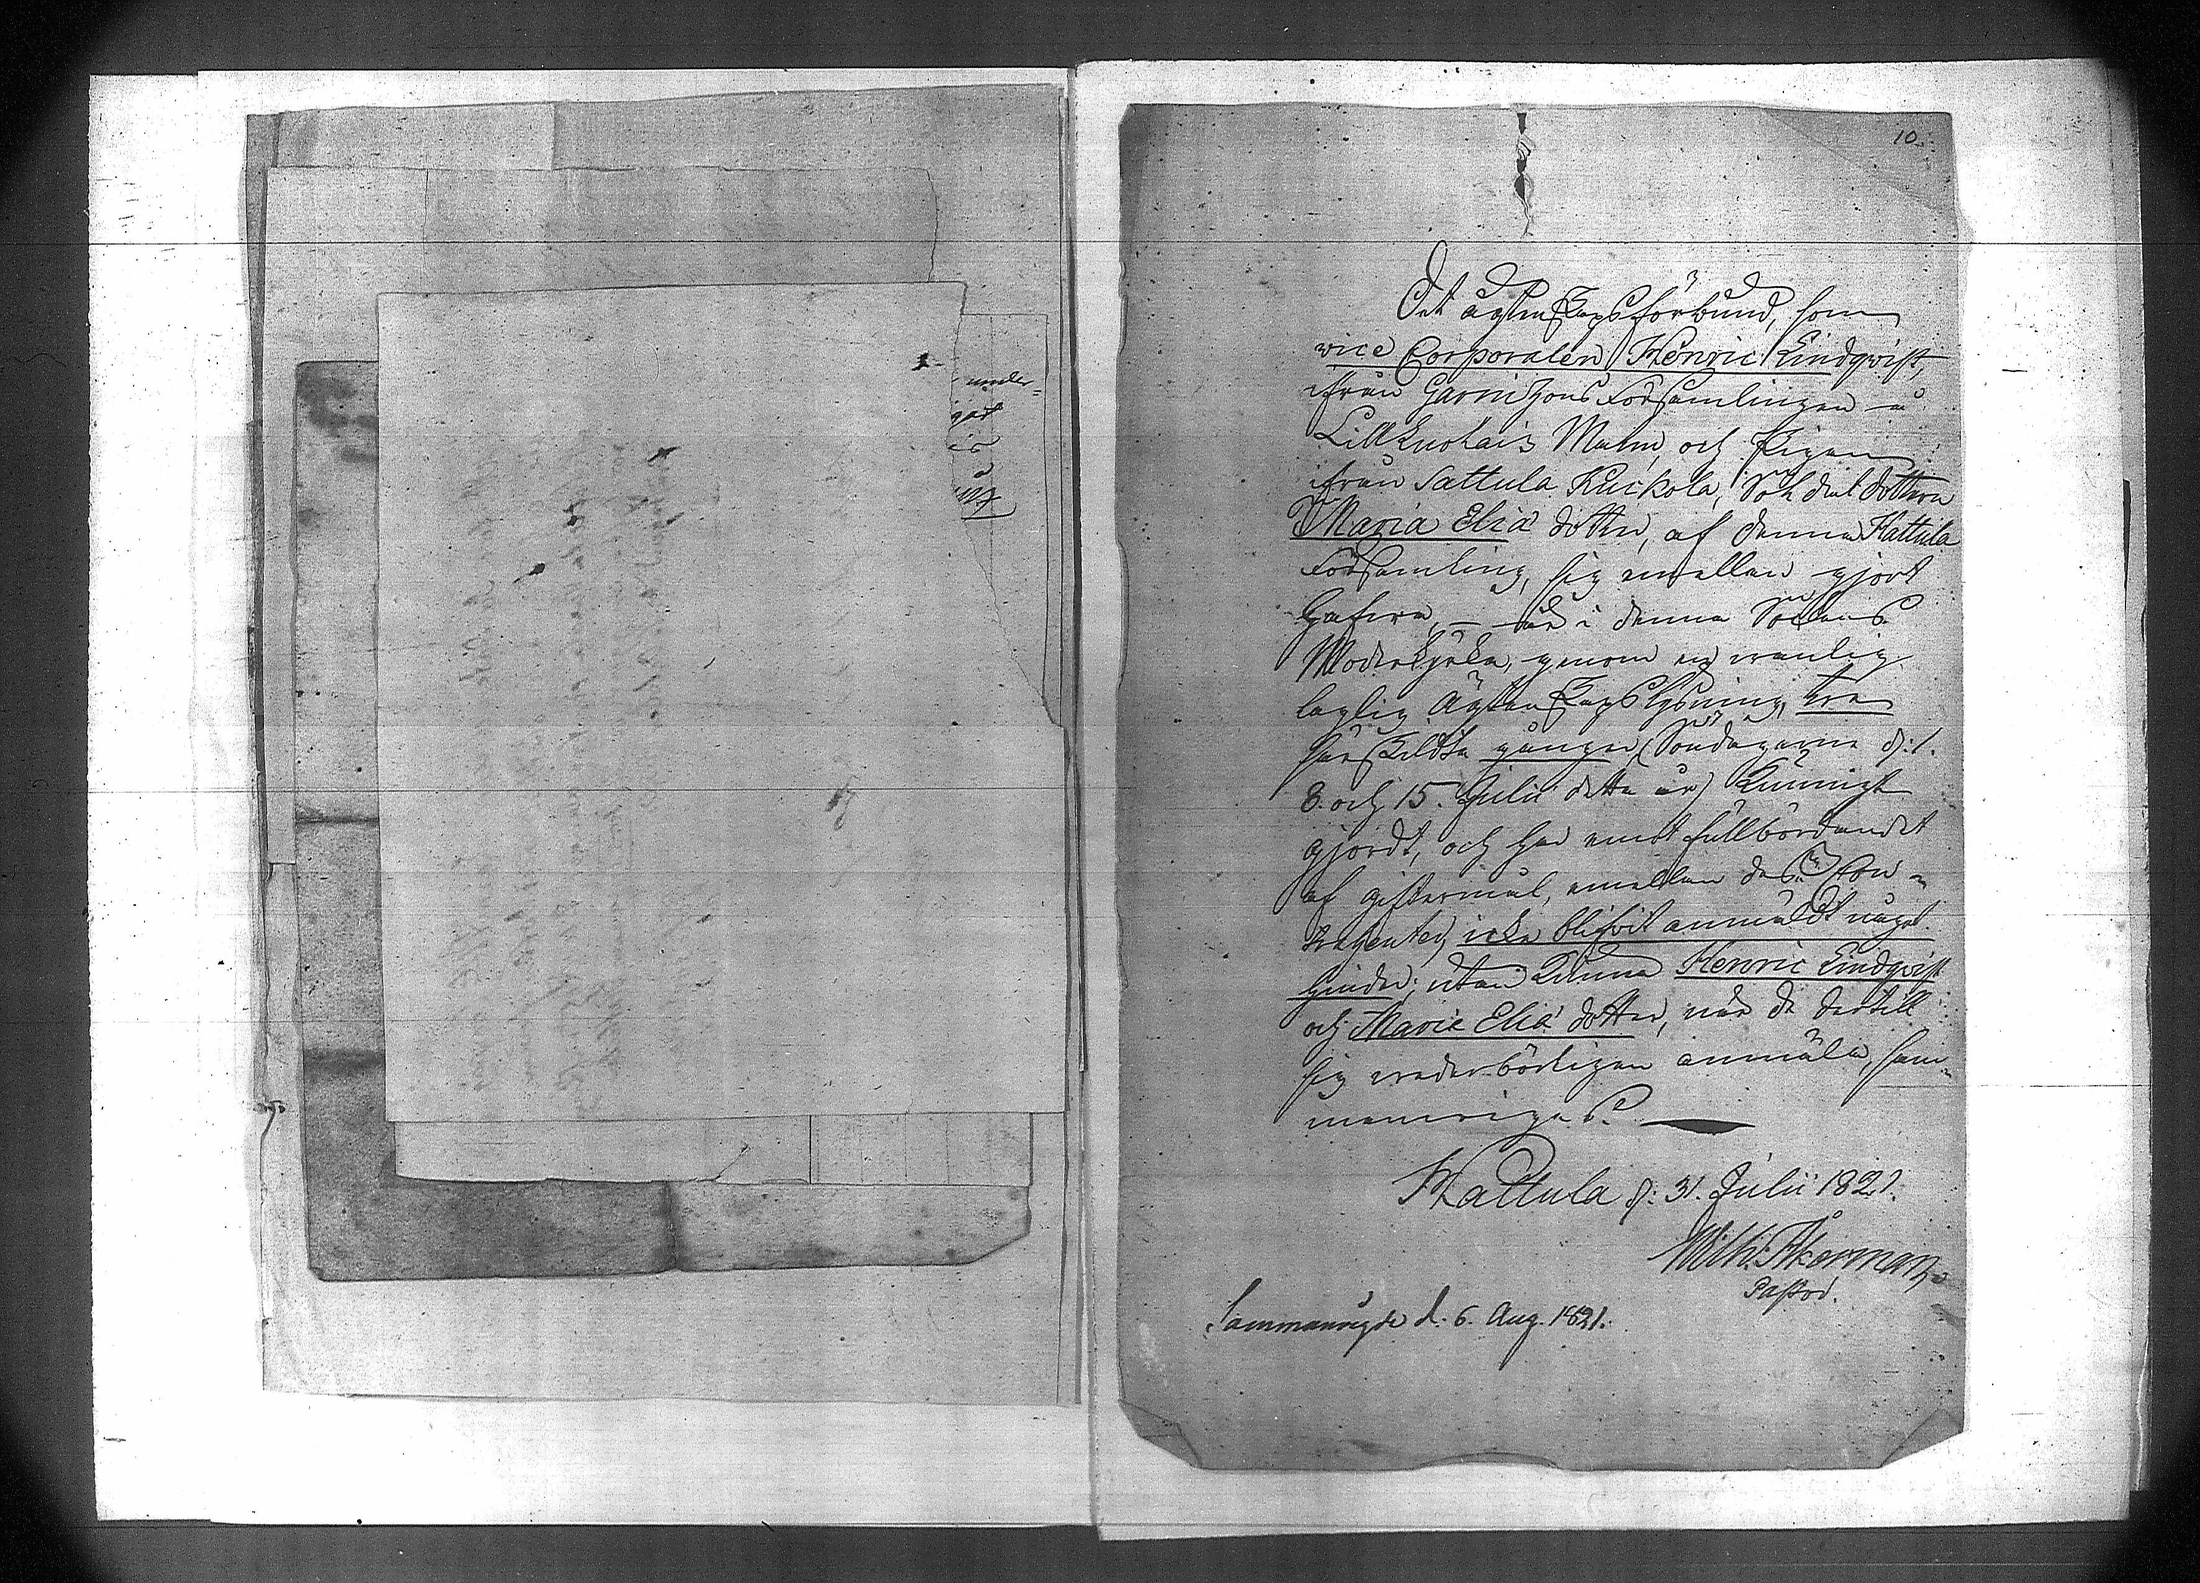 under=
gat
10.
Det ägtenskapsförbund, som
vice Corporalen Henric Lindqvist,
ifrån Garnizons Församlingen å
Lill Enehais Malm, och Pigan
ifrån Sattula Kuckola, Soldat dottren
Maria Eliæ dotter, af denna Hattula
Församling, sig emellan gjort
hafva, — är i denna Sockens
Moderkyrka, genom en vanlig
laglig Ägtenskapslysning, tre
särskildta gånger, (Söndagarne d: 1.
8. och 15. Julii detta år) kunnigt
gjordt, och har emot fullbordandet
af giftermål, emellan dess Con-
trahenter, icke blifvit anmäldt något
hinder; utan kunna Henric Lindqvist
och Maria Eliæ dotter, när de dertill
sig vederbörligen anmäla, sam-
manvigas.
Hattula d: 31. Julii 1821.
Wilh: Åkerman,
Pastor.
Sammanvigde d. 6. Aug. 1821.